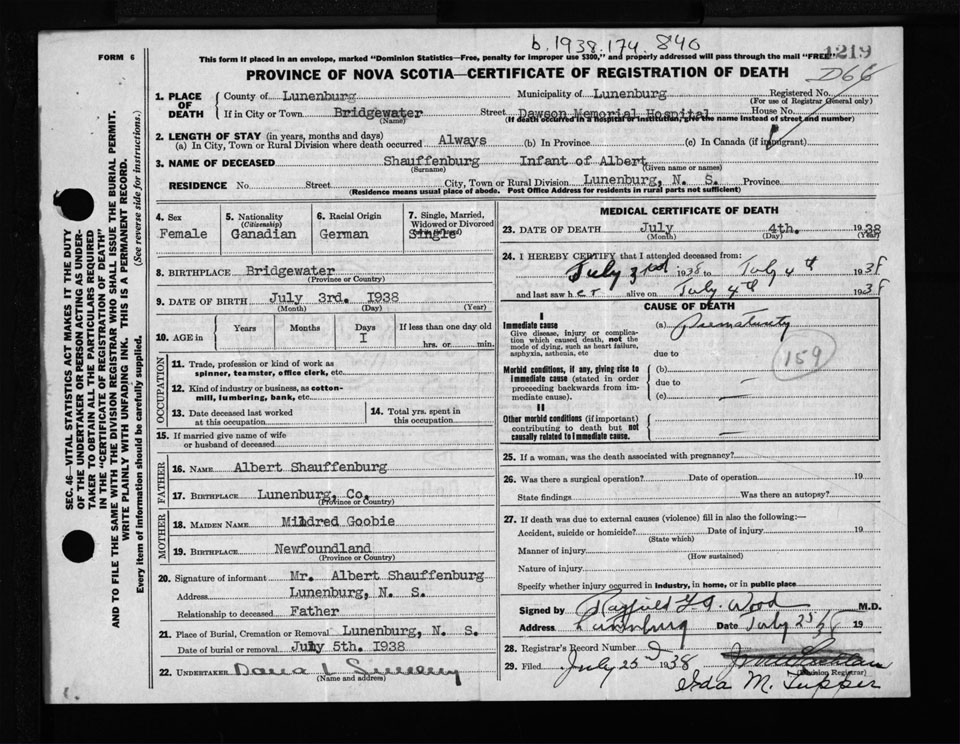 b.1938.174.840
1219
D66
FORM 6
This form if placed in an envelope, marked "Dominion Statistics—Free, penalty for improper use $300," and properly addressed will pass through the mail "FREE"
PROVINCE OF NOVA SCOTIA—CERTIFICATE OF REGISTRATION OF DEATH
SEC. 46—VITAL STATISTICS ACT MAKES IT THE DUTY
OF THE UNDERTAKER OR PERSON ACTING AS UNDER-
TAKER TO OBTAIN ALL THE PARTICULARS REQUIRED
IN THE "CERTIFICATE OF REGISTRATION OF DEATH"
AND TO FILE THE SAME WITH THE DIVISION REGISTRAR WHO SHALL ISSUE THE BURIAL PERMIT.
WRITE PLAINLY WITH UNFADING INK. THIS IS A PERMANENT RECORD.
Every item of information should be carefully supplied. (See reverse side for instructions.)
1. PLACE OF DEATH
County of Lunenburg Municipality of Lunenburg Registered No.
(For use of Registrar General only)
If in City or Town Bridgewater Street Dawson Memorial Hospital House No.
(Name) (If death occurred in a hospital or institution, give the name instead of street and number)
2. LENGTH OF STAY (in years, months and days)
(a) In City, Town or Rural Division where death occurred Always (b) In Province (c) In Canada (if immigrant)
3. NAME OF DECEASED Shauffenburg Infant of Albert
(Surname) (Given name or names)
RESIDENCE No. Street City, Town or Rural Division Lunenburg, N. S. Province
(Residence means usual place of abode. Post Office Address for residents in rural parts not sufficient)
4. Sex
Female
5. Nationality
(Citizenship)
Canadian
6. Racial Origin
German
7. Single, Married,
Widowed or Divorced
Single
8. BIRTHPLACE Bridgewater
(Province or Country)
9. DATE OF BIRTH July 3rd. 1938
(Month) (Day) (Year)
10. AGE in Years Months Days If less than one day old
I hrs. or min.
OCCUPATION
11. Trade, profession or kind of work as
spinner, teamster, office clerk, etc.
12. Kind of industry or business, as cotton-
mill, lumbering, bank, etc.
13. Date deceased last worked
at this occupation
14. Total yrs. spent in
this occupation
15. If married give name of wife
or husband of deceased
FATHER
16. NAME Albert Shauffenburg
17. BIRTHPLACE Lunenburg, Co.
(Province or Country)
MOTHER
18. MAIDEN NAME Mildred Goobie
19. BIRTHPLACE Newfoundland
(Province or Country)
20. Signature of informant Mr. Albert Shauffenburg
Address Lunenburg, N. S.
Relationship to deceased Father
21. Place of Burial, Cremation or Removal Lunenburg, N. S.
Date of burial or removal July 5th. 1938
22. UNDERTAKER Dana L Sweeny
(Name and address)
MEDICAL CERTIFICATE OF DEATH
23. DATE OF DEATH July 4th. 1938
(Month) (Day) (Year)
24. I HEREBY CERTIFY that I attended deceased from:
July 3rd 1938 to July 4th 1938
and last saw her alive on July 4th 1938
CAUSE OF DEATH
I
Immediate cause
Give disease, injury or complica-
tion which caused death, not the
mode of dying, such as heart failure,
asphyxia, asthenia, etc
(a) Prematurity
due to
159
Morbid conditions, if any, giving rise to
immediate cause (stated in order
proceeding backwards from im-
mediate cause).
(b)
due to
(c)
II
Other morbid conditions (if important)
contributing to death but not
causally related to immediate cause.
25. If a woman, was the death associated with pregnancy?
26. Was there a surgical operation? Date of operation 19
State findings Was there an autopsy?
27. If death was due to external causes (violence) fill in also the following:—
Accident, suicide or homicide? Date of injury 19
(State which)
Manner of injury
(How sustained)
Nature of injury
Specify whether injury occurred in industry, in home, or in public place
Signed by Rayfield G. A. Wood M.D.
Address Lunenburg Date July 25/38 19
28. Registrar's Record Number
29. Filed July 25 1938
(Division Registrar)
Ida M. Tupper